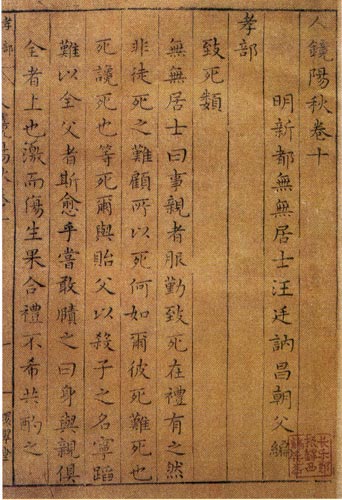 人鏡陽秋卷十
明新都無無居士汪廷訥昌朝父編
孝部
致死類
無無居士曰事親者服勤致死在禮有之然
非徒死之難顧所以死何如爾彼死難死也
死讒死也等死爾與貽父以殺子之名寧蹈
難以全父者斯愈乎嘗敢贖之曰身與親俱
全者上也激而傷生果合禮不希共酌之
孝部
人鏡陽秋
一
環翠堂
長樂鄭
振鐸西
諦藏書